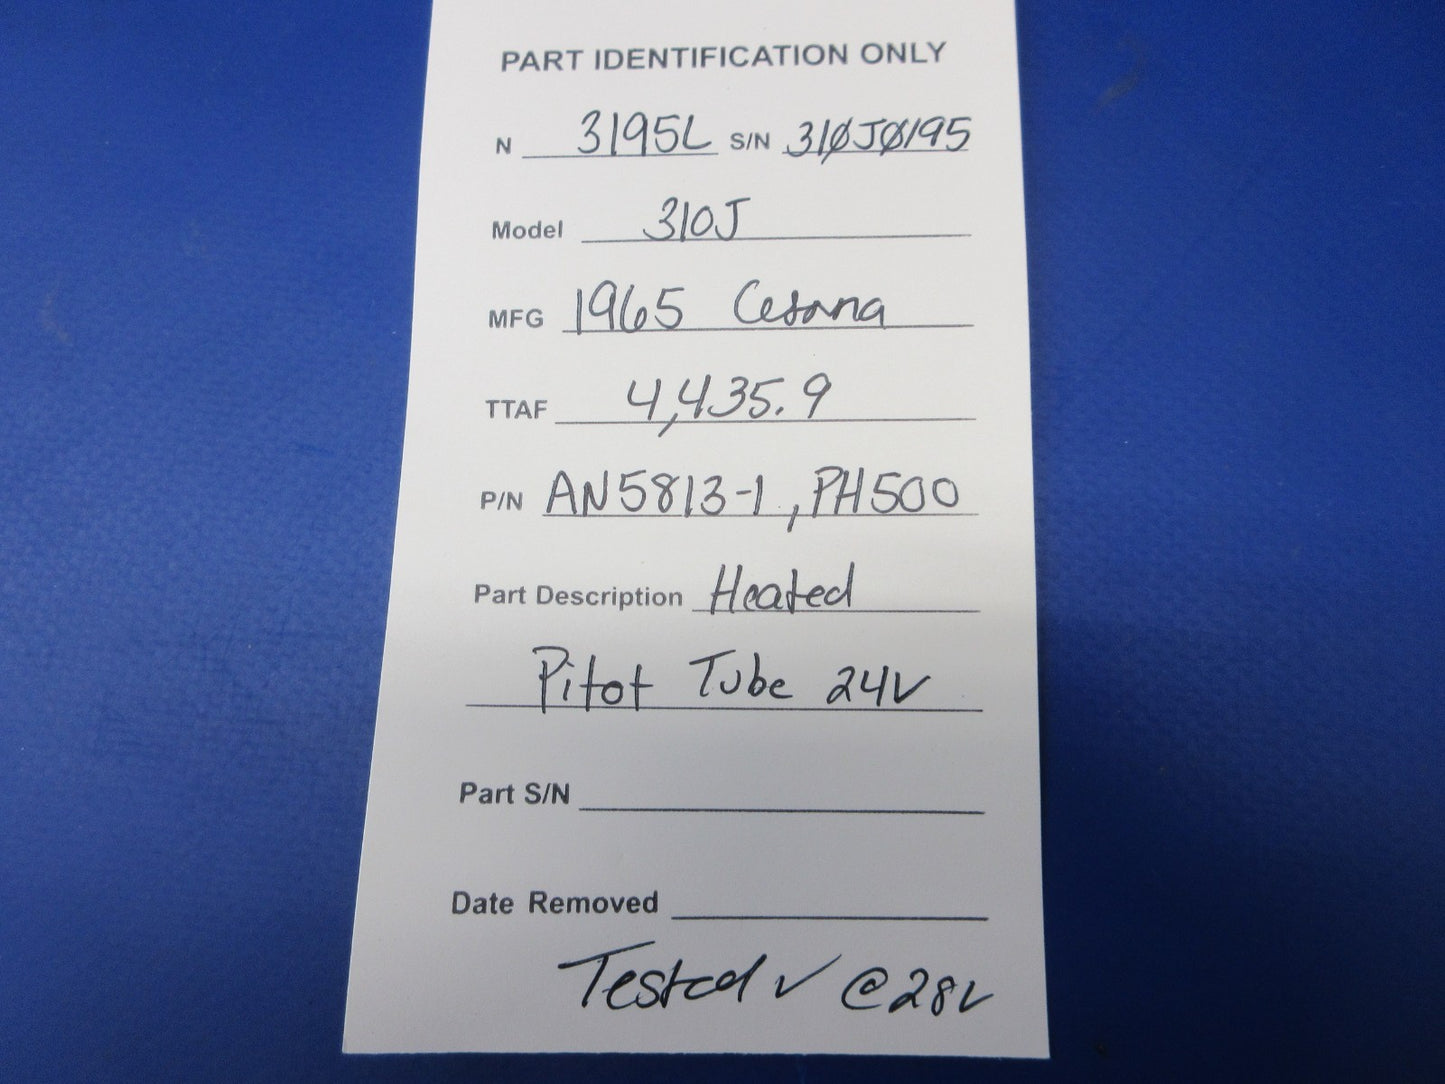 PART IDENTIFICATION ONLY
N 3195L S/N 310J0195
Model 310J
MFG 1965 Cessna
TTAF 4,435.9
P/N AN5813-1, PH500
Part Description Heated
Pitot Tube 24V
Part S/N
Date Removed
Tested ✓ @28V